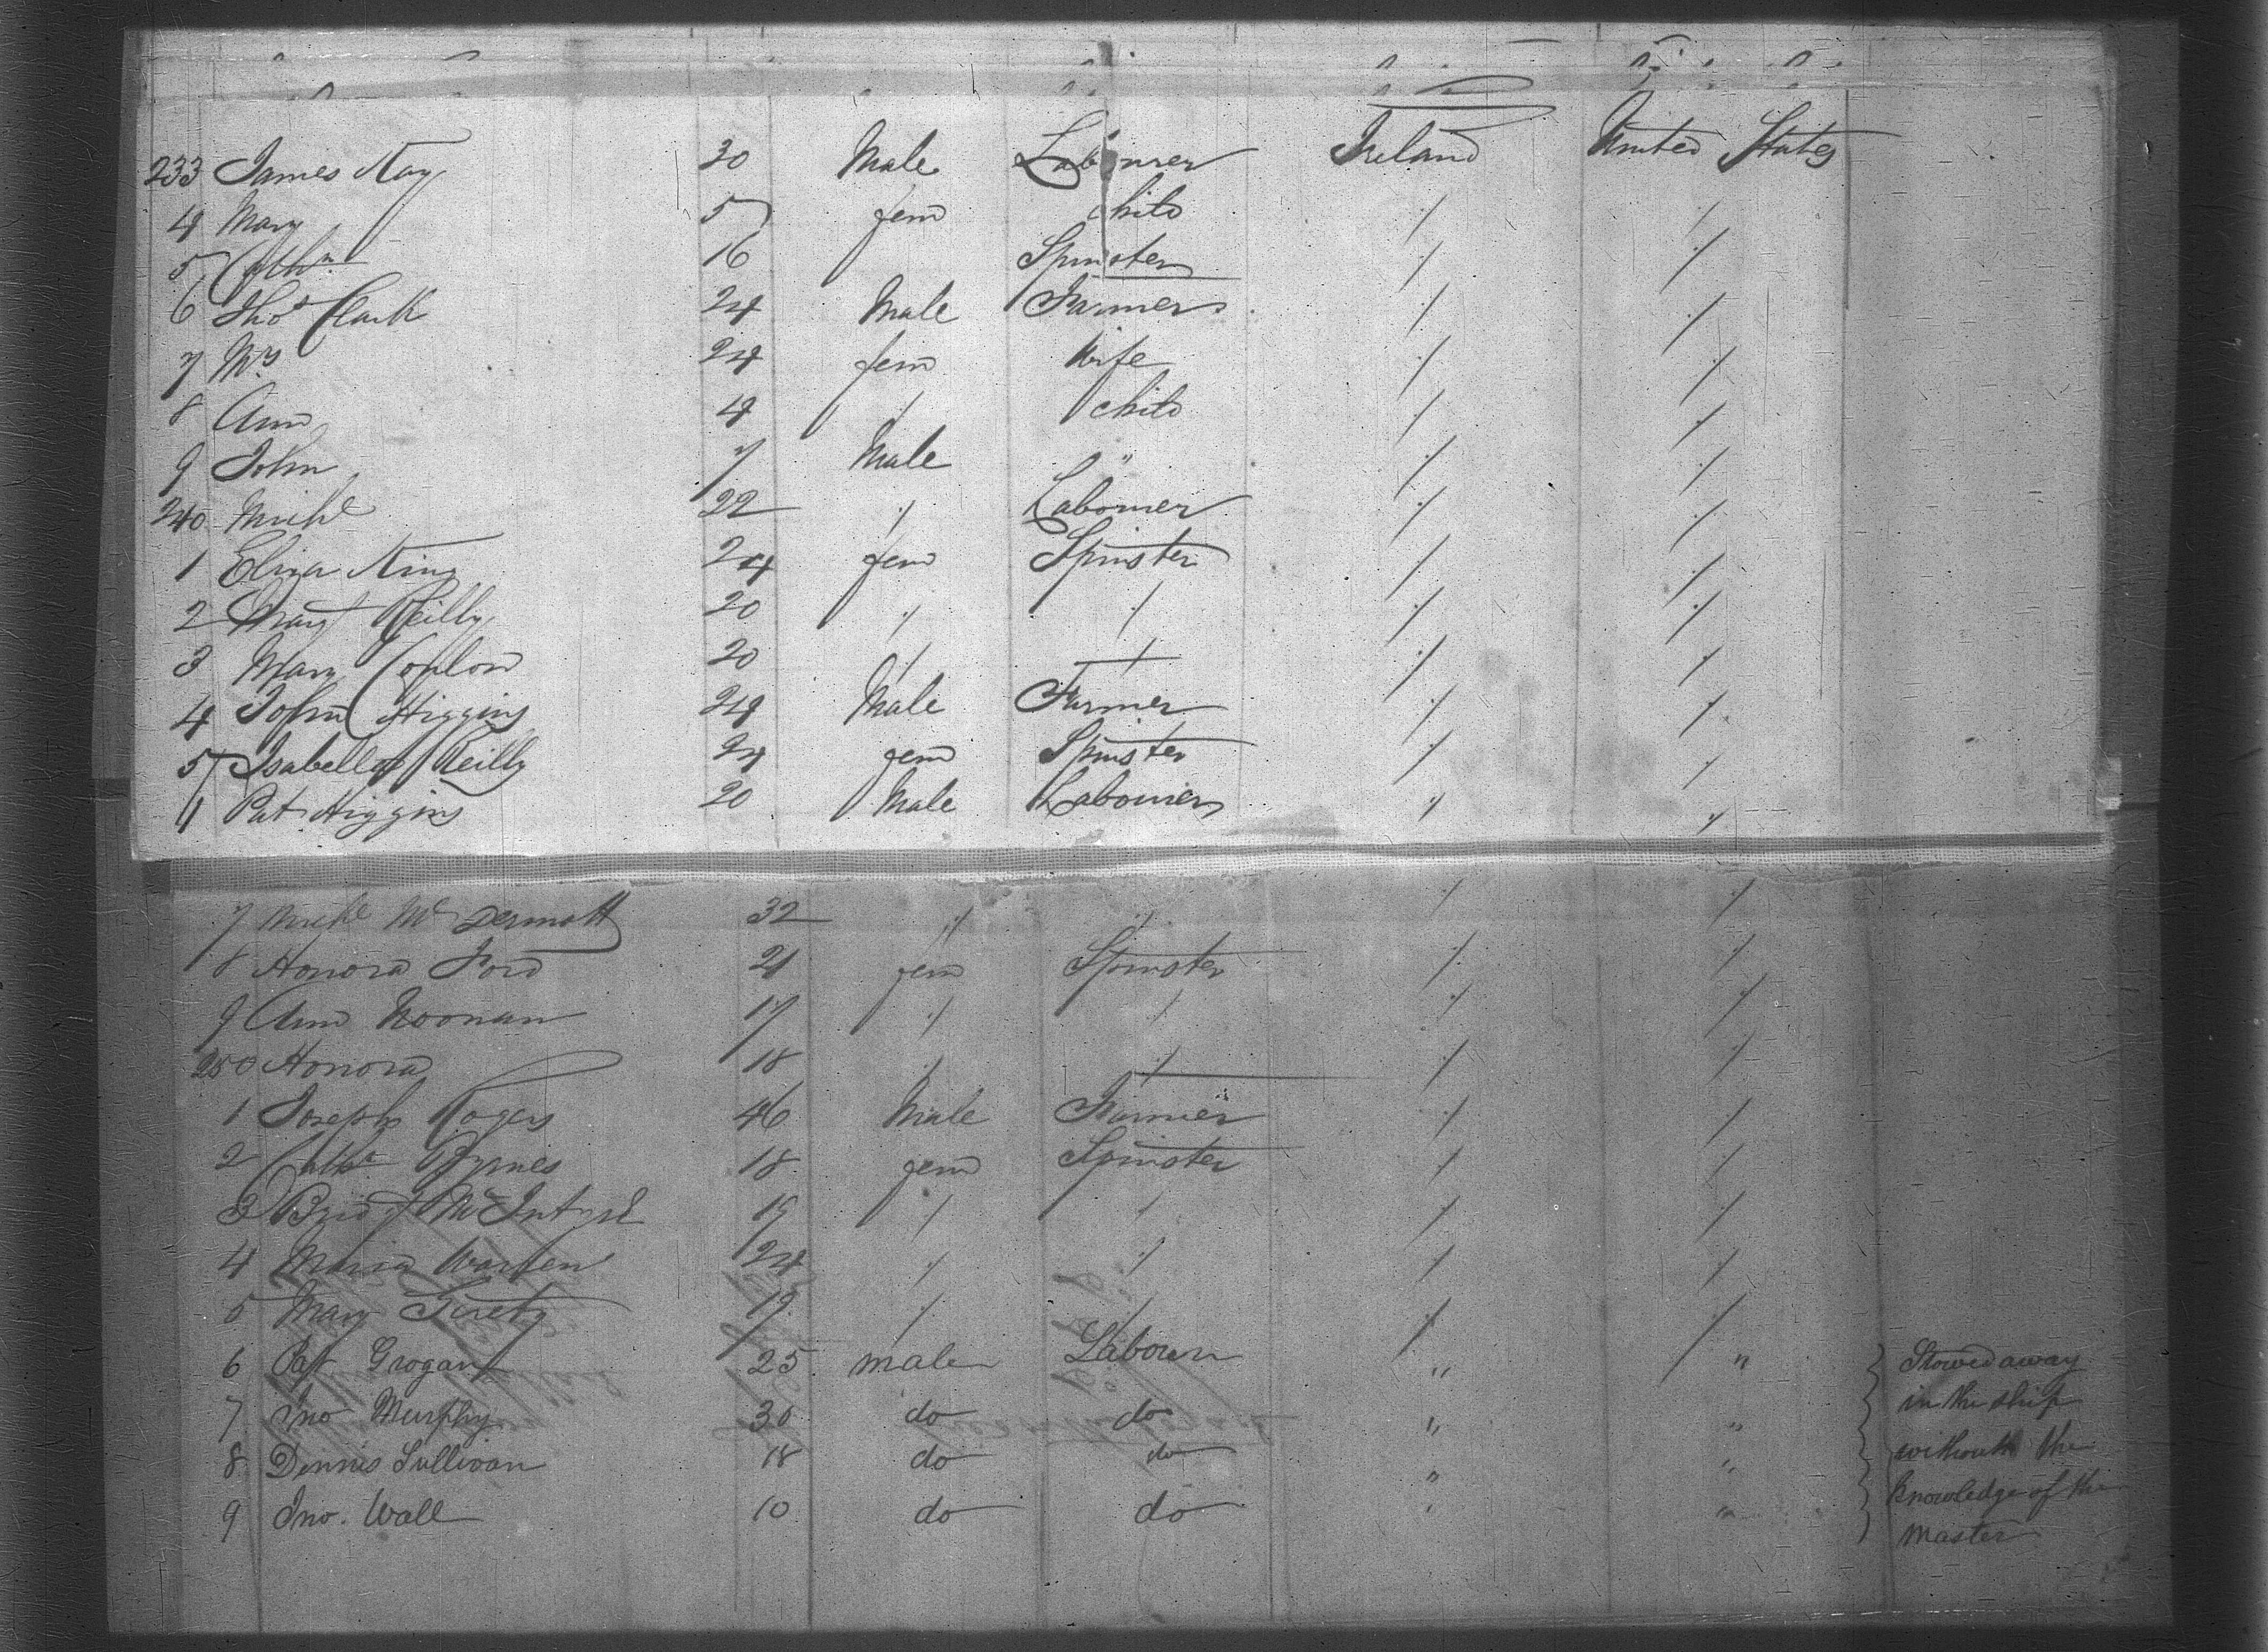 233 James Kay 30 Male Labourer Ireland United States
4 Mary 5 fem child " "
5 Cathn 16 Spinster " "
6 Thos Clark 24 Male Farmer " "
7 Mrs 24 fem Wife " "
8 Ann 4 " child " "
9 John 7 Male " " "
240 Michl 22 " Labourer " "
1 Eliza King 24 fem Spinster " "
2 Mary Reilly 20 " " " "
3 Mary Conlon 20 " " " "
4 John Higgins 24 Male Farmer " "
5 Isabella Reilly 24 fem Spinster " "
Pat Higgins 20 Male Labourer " "
7 Michl McDermott 32 " " " "
8 Honora Ford 21 fem Spinster " "
9 Ann Noonan 17 " " " "
250 Honora 18 " " " "
1 Joseph Rogers 46 Male Farmer " "
2 Cathn Byrnes 18 fem Spinster " "
3 Bridgt McIntyre 19 " " " "
4 Maria Warren 24 " " " "
5 Mary 19 " " " "
6 Pat Grogan 25 male Labourer " " Stowed away
7 Jno Murphy 30 do do " " in the ship
8 Dennis Sullivan 18 do do " " without the
9 Jno. Wall 10 do do " " knowledge of the
master